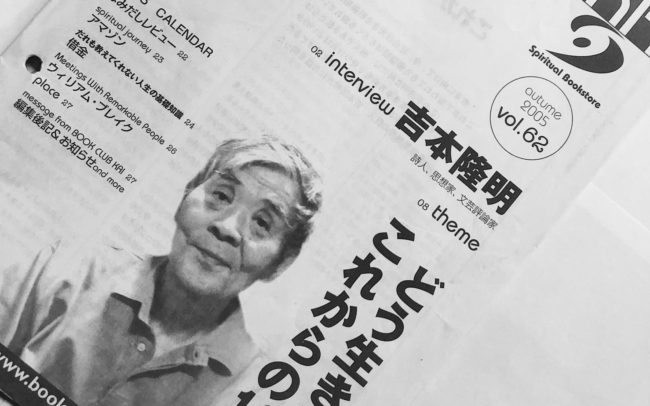 CALENDAR
みだしレビュー 22
spiritual journey 23
アマゾン
借金
だれも教えてくれない人生の基礎知識 24
Meetings With Remarkable People 26
ウィリアム・ブレイク
place 27
message from BOOK CLUB KAI 27
編集後記&お知らせand more
Spiritual Bookstore
autumn
2005
vol.62
02 interview 吉本隆明
詩人、思想家、文芸評論家
08 theme
どう生き
これからの
www.boo